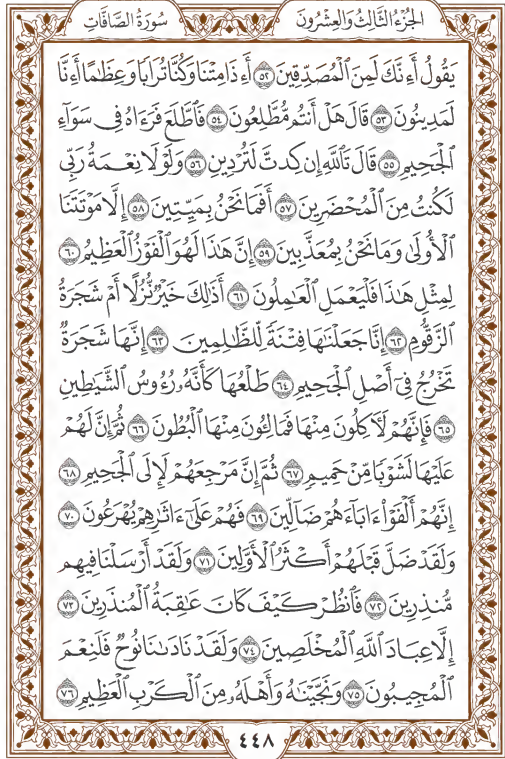 الجُزْءُ الثَّالِثُ وَالعِشْرُونَ
سُورَةُ الصَّافَّاتِ
يَقُولُ أَءِنَّكَ لَمِنَ ٱلْمُصَدِّقِينَ ٥٢ أَءِذَا مِتْنَا وَكُنَّا تُرَابًا وَعِظَٰمًا أَءِنَّا
لَمَدِينُونَ ٥٣ قَالَ هَلْ أَنتُم مُّطَّلِعُونَ ٥٤ فَٱطَّلَعَ فَرَءَاهُ فِي سَوَآءِ
ٱلْجَحِيمِ ٥٥ قَالَ تَٱللَّهِ إِن كِدتَّ لَتُرْدِينِ ٥٦ وَلَوْلَا نِعْمَةُ رَبِّي
لَكُنتُ مِنَ ٱلْمُحْضَرِينَ ٥٧ أَفَمَا نَحْنُ بِمَيِّتِينَ ٥٨ إِلَّا مَوْتَتَنَا
ٱلْأُولَىٰ وَمَا نَحْنُ بِمُعَذَّبِينَ ٥٩ إِنَّ هَٰذَا لَهُوَ ٱلْفَوْزُ ٱلْعَظِيمُ ٦٠
لِمِثْلِ هَٰذَا فَلْيَعْمَلِ ٱلْعَٰمِلُونَ ٦١ أَذَٰلِكَ خَيْرٌ نُّزُلًا أَمْ شَجَرَةُ
ٱلزَّقُّومِ ٦٢ إِنَّا جَعَلْنَٰهَا فِتْنَةً لِّلظَّٰلِمِينَ ٦٣ إِنَّهَا شَجَرَةٌ
تَخْرُجُ فِيٓ أَصْلِ ٱلْجَحِيمِ ٦٤ طَلْعُهَا كَأَنَّهُۥ رُءُوسُ ٱلشَّيَٰطِينِ
٦٥ فَإِنَّهُمْ لَأٓكِلُونَ مِنْهَا فَمَالِـُٔونَ مِنْهَا ٱلْبُطُونَ ٦٦ ثُمَّ إِنَّ لَهُمْ
عَلَيْهَا لَشَوْبًا مِّنْ حَمِيمٍ ٦٧ ثُمَّ إِنَّ مَرْجِعَهُمْ لَإِلَى ٱلْجَحِيمِ ٦٨
إِنَّهُمْ أَلْفَوْا۟ ءَابَآءَهُمْ ضَآلِّينَ ٦٩ فَهُمْ عَلَىٰٓ ءَاثَٰرِهِمْ يُهْرَعُونَ ٧٠
وَلَقَدْ ضَلَّ قَبْلَهُمْ أَكْثَرُ ٱلْأَوَّلِينَ ٧١ وَلَقَدْ أَرْسَلْنَا فِيهِم
مُّنذِرِينَ ٧٢ فَٱنظُرْ كَيْفَ كَانَ عَٰقِبَةُ ٱلْمُنذَرِينَ ٧٣
إِلَّا عِبَادَ ٱللَّهِ ٱلْمُخْلَصِينَ ٧٤ وَلَقَدْ نَادَىٰنَا نُوحٌ فَلَنِعْمَ
ٱلْمُجِيبُونَ ٧٥ وَنَجَّيْنَٰهُ وَأَهْلَهُۥ مِنَ ٱلْكَرْبِ ٱلْعَظِيمِ ٧٦
٤٤٨